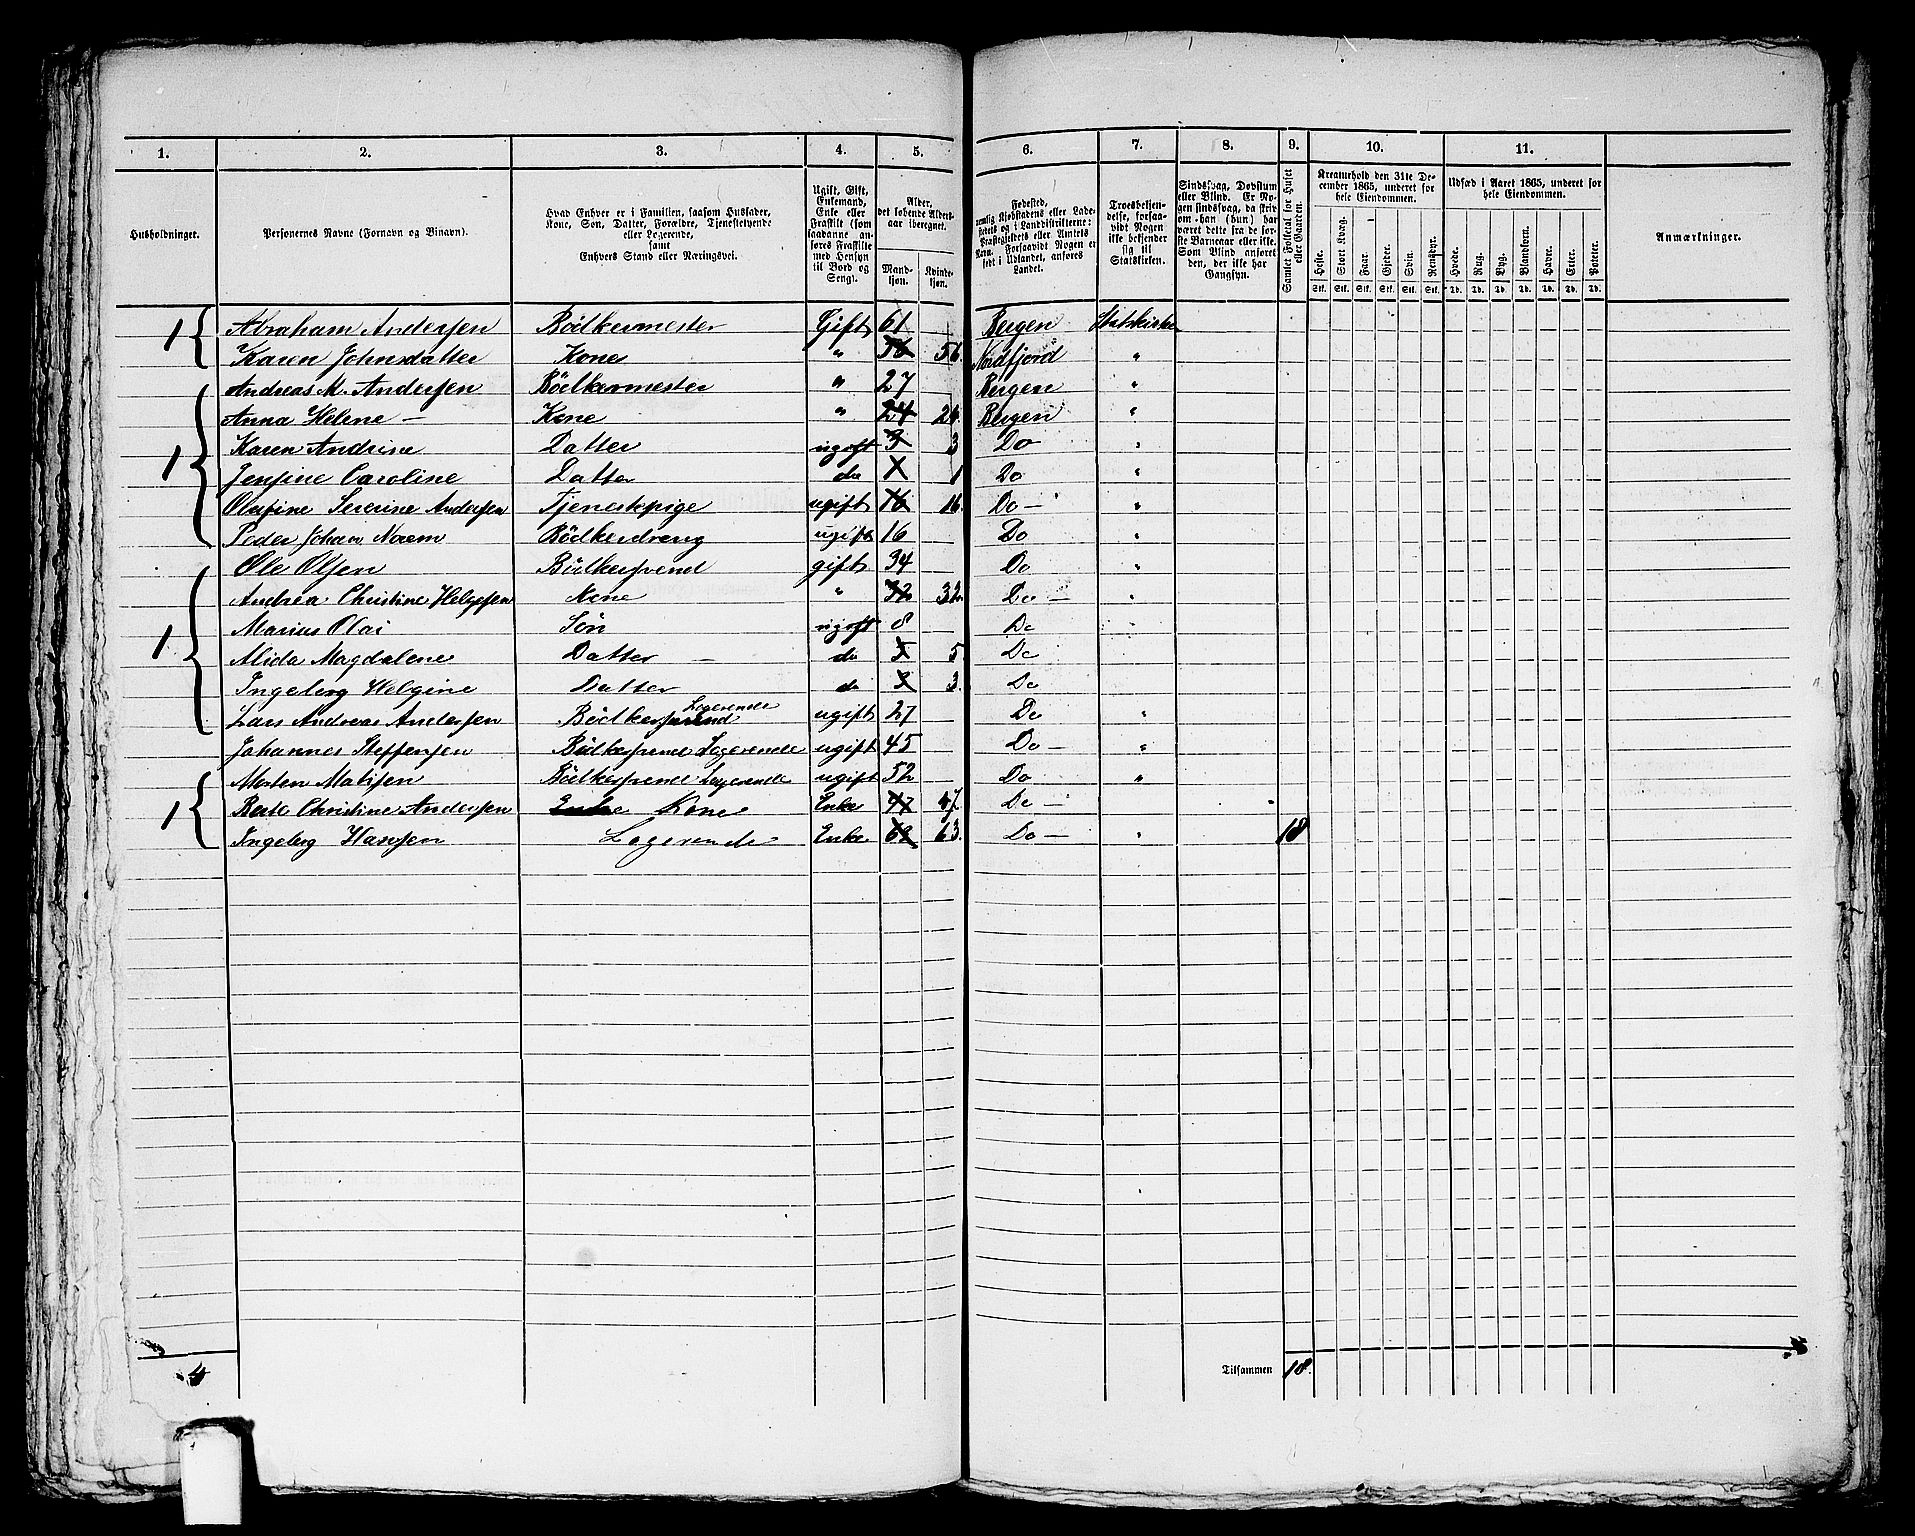 1. 2. 3. 4. 5. 6. 7. 8. 9. 10. 11.
Husholdninger. Personernes Navne (Fornavn og Binavn). Hvad Enhver er i Familien, saasom Husfader, Kone, Søn, Datter, Forældre, Tjenestetyende eller Logerende, samt Enhvers Stand eller Næringsvei. Ugift, Gift, Enkemand, Enke eller Fraskilt (som saadanne anføres Fraskilte med Hensyn til Bord og Seng). Alder, det løbende Alders-aar iberegnet. Mand-kjøn. Kvinde-kjøn. Fødested, nemlig Kjøbstadens eller Lade-stedets og i Landdistrikterne: Præstegjeldets eller Amtets Navn. Forsaavidt Nogen er født i Udlandet, anføres Landet. Troesbekjen-delse, forsaa-vidt Nogen ikke bekjender sig til Statskirken. Sindssvag, Døvstum eller Blind. Er No-gen sindssvag, da skrives om han (hun) har været dette fra de før-ste Barneaar eller ikke. Som Blind anføres den, der ikke har Gangsyn. Samlet Folketal for Huset eller Gaarden. Kreaturhold den 31te De-cember 1865, underet for hele Eiendommen. Udsæd i Aaret 1865, underet for hele Eiendommen. Anmærkninger.
Heste. Stort Kvæg. Faar. Gjeder. Svin. Rensdyr. Hvede. Rug. Byg. Blandkorn. Havre. Erter. Poteter.
Stk. Stk. Stk. Stk. Stk. Stk. Td. Td. Td. Td. Td. Td. Td.
1 { Abraham Andersen Bödkermester Gift 61 Bergen Statskirke
Karen Johnsdatter Kone " 56 56 Nordfjord "
Andreas M. Andersen Bödkermester " 27 Bergen "
Anna Helene — Kone " 24 24 Bergen "
1 { Karen Andrine Datter ugift 3 3 Do "
Jensine Caroline Datter do 1 Do "
Olufine Severine Andersen Tjenestpige ugift 16 16 Do — "
Peder Johan Norem Bödkerdreng ugift 16 Do "
Ole Olsen Bödkersvend gift 34 Do "
Andrea Christine Helgesen Kone " 32 32 Do —
1 { Marius Olai Sön ugift 8 Do
Alida Magdalene Datter — do 5 5 Do
Ingeborg Helgine Datter do 3 3 Do
Lars Andreas Andersen Bödkersvend Logerende ugift 27 Do "
Johannes Steffensen Bödkersvend Logerende ugift 45 Do — "
Morten Matisen Bödkersvend Logerende ugift 52 Do "
1 { Berte Christine Andersen Enke Kone Enke 47 47 Do —
Ingeborg Hansen Logerende Enke 63 Do — " 18
4 Tilsammen 18.